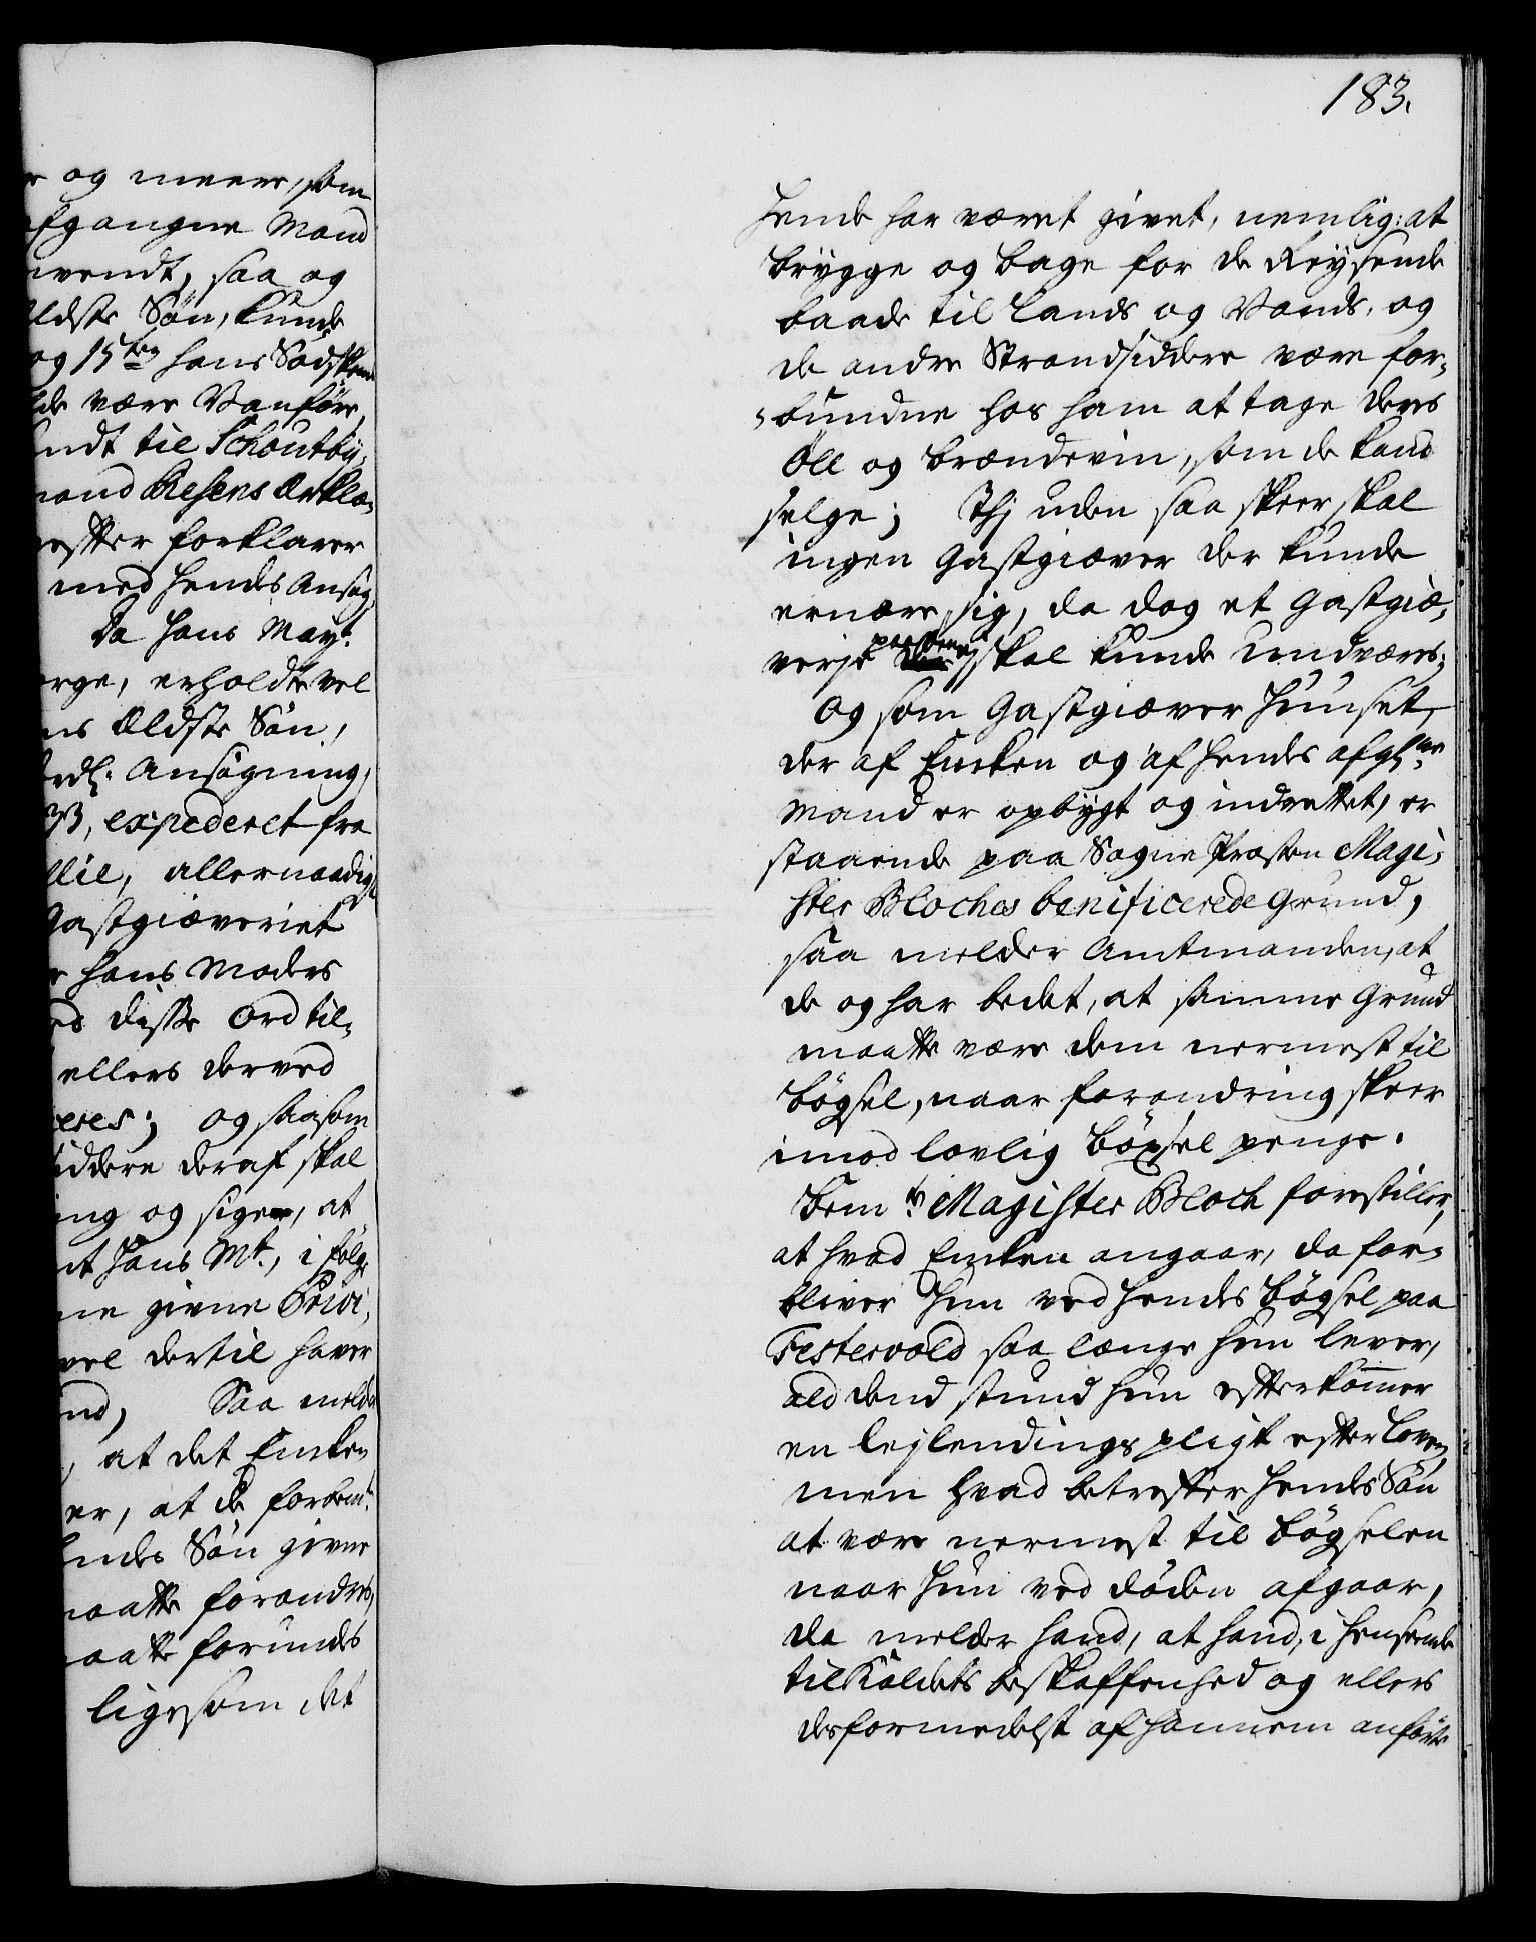 r og meere, som
afgangne Mand
nvendt, saa og
ldste Søn, kunde
og 15ten hans
de være Vanføre,
ndt til Schoutby,
mand Resens Erklæ,
efter forklarer
med hendes Ansøg,
Da Hans Mayt.
orge, erholdte vel
ns Eldste Søn,
Ansøgning,
33, expederet fra
llie, allernaadigst
Gastgiæveriet
r hans Moders
ed disse Ord til,
ellers derved
ceres; og saasom
iddere deraf skal
ing og sigen, at
at Hans Mt., i følge
ne givne Privi,
vel dertil haver
nd, Saa melder
, at det Enken
er, at de forbemte.
endes Søn givne
maatte forandres,
maatte forundes
ligesom det
183.
hende har været givet, nemlig: at
brygge og bage for de Reysende
baade til Lands og Vands, og
de andre Strandsiddere være for,
bundne hos ham at tage deres
Øll og brændeviin, som de kand
selge; Thj uden saa skeer skal
ingen Gastgiæver der kunde
ernære sig, da dog et Gastgiæ,
verje paa ej skal kunde undværes;
Og som Gastgiæver Huuset,
der af Enken og af hendes afgl:ne
Mand er opbygt og indrettet, er
staaende paa Sogne Præsten Magi,
ster Bloches benificerede Grund,
saa melder Amtmanden, at
de og har bedet, at samme Grund
maatte være dem nermest til
bøgsel, naar forandring skeer
imod lovlig bøgsel penge.
bemte Magister Bloch forestiller,
at hvad Enken angaar, da for,
bliver hun ved hendes bøgsel paa
Festervold saa længe hun lever,
ald dend stund hun efterkommer
en lejlendings pligt efter Loven,
men hvad betreffer hendes Søn
at være nermest til bøgselen
naar hun ved døden afgaar,
da melder hand, at hand, i henseende
til Kaldets beskaffenhed og ellers
desformedelst af hannem anførte